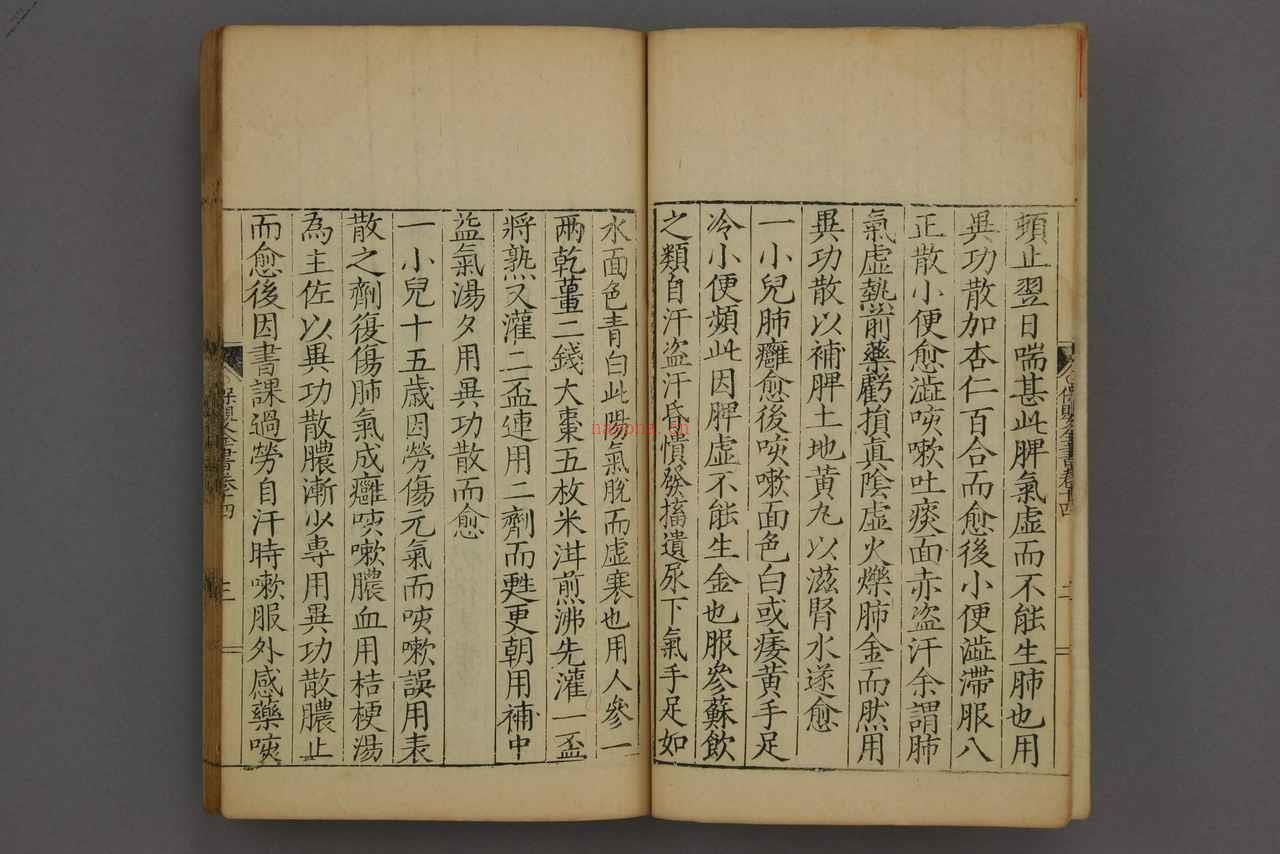 頓止翌日喘甚此脾氣虛而不能生肺也用
異功散加杏仁百合而愈後小便澁滯服八
正散小便愈澁咳嗽吐痰面赤盗汗余謂肺
氣虛熱前藥虧損真陰虛火爍肺金而然用
異功散以補脾土地黄丸以滋腎水遂愈
一小兒肺癰愈後咳嗽面色白或痿黄手足
冷小便頻此因脾虛不能生金也服參蘇飲
之類自汗盗汗昏憒發搐遺尿下氣手足如
氷面色青白此陽氣脫而虛寒也用人參一
兩乾薑二錢大棗五枚米泔煎沸先灌一盃
將熟又灌二盃連用二劑而甦更朝用補中
益氣湯夕用異功散而愈
一小兒十五歲因勞傷元氣而咳嗽誤用表
散之劑復傷肺氣成癰咳嗽膿血用桔梗湯
為主佐以異功散膿漸少專用異功散膿止
而愈後因書課過勞自汗時嗽服外感藥咳
保嬰全書卷十四
保嬰全書卷十四